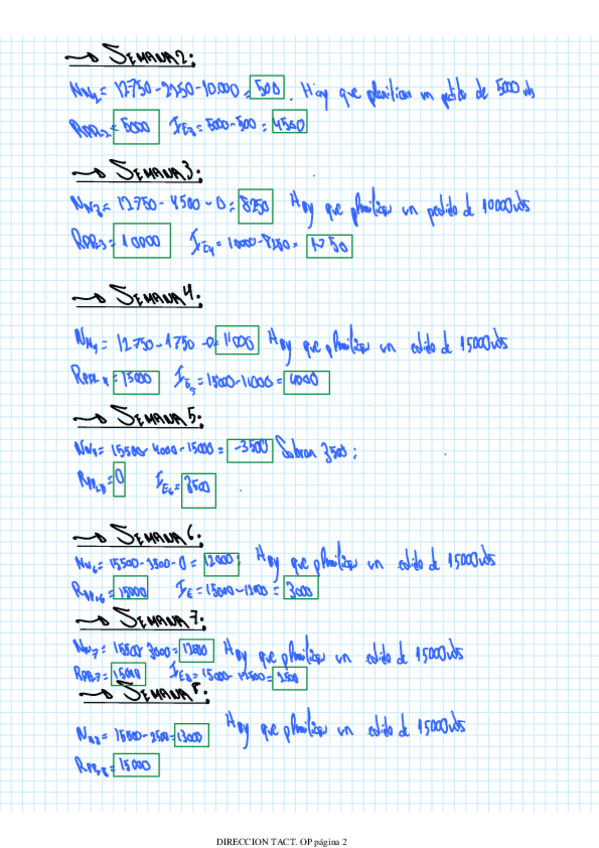 → SEMANA 2:
NN2 = 12750 - 2250 - 10000 = 500. Hay que planificar un pedido de 5000 uds
RPPL2 = 5000 IE3 = 5000 - 500 = 4500
→ SEMANA 3:
NN3 = 12750 - 4500 - 0 = 8250 Hay que planificar un pedido de 10000 uds
RPPL3 = 10000 IE4 = 10000 - 8250 = 1750
→ SEMANA 4:
NN4 = 12750 - 1750 - 0 = 11000 Hay que planificar un pedido de 15000 uds
RPPL4 = 15000 IE5 = 15000 - 11000 = 4000
→ SEMANA 5:
= 15500 - 4000 - 15000 = -3500 Sobran 3500;
= 0 IE6 = 3500
→ SEMANA 6:
NN6 = 15500 - 3500 - 0 = 12000; Hay que planificar un pedido de 15000 uds
= 15000 IE = 15000 - 12000 = 3000
→ SEMANA 7:
NN7 = 15500 - 3000 = Hay que planificar un pedido de 15000 uds
= 15000 = 15000 - 12500 = 2500
→ SEMANA 8:
NN8 = 15500 - 2500 = 13000 Hay que planificar un pedido de 15000 uds
= 15000
DIRECCION TACT. OP página 2